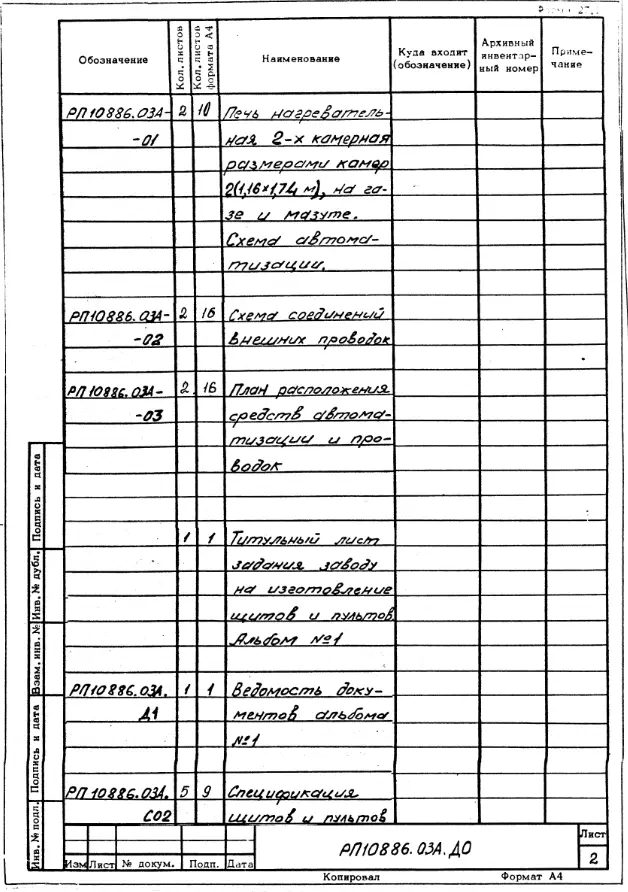 Обозначение Кол. листов Кол. листов формата А4 Наименование Куда входит (обозначение) Архивный инвентарный номер Примечание
РП10886.03А- 2 10 Печь нагреватель-
-01 ная 2-х камерная
размерами камер
2(1,16×1,74 м), на га-
зе и мазуте.
Схема автома-
тизации.
РП10886.03А- 2 16 Схема соединений
-02 внешних проводок
РП10886.03А- 2 16 План расположения
-03 средств автома-
тизации и про-
водок
1 1 Титульный лист
задания заводу
на изготовление
щитов и пультов
Альбом №1
РП10886.03А. 1 1 Ведомость доку-
Д1 ментов альбома
№1
РП10886.03А. 5 9 Спецификация
СО2 щитов и пультов
Инв. № подл. Подпись и дата Взам. инв. № Инв. № дубл. Подпись и дата
Изм Лист № докум. Подп. Дата
РП10886.03А.ДО
Лист
2
Копировал Формат А4